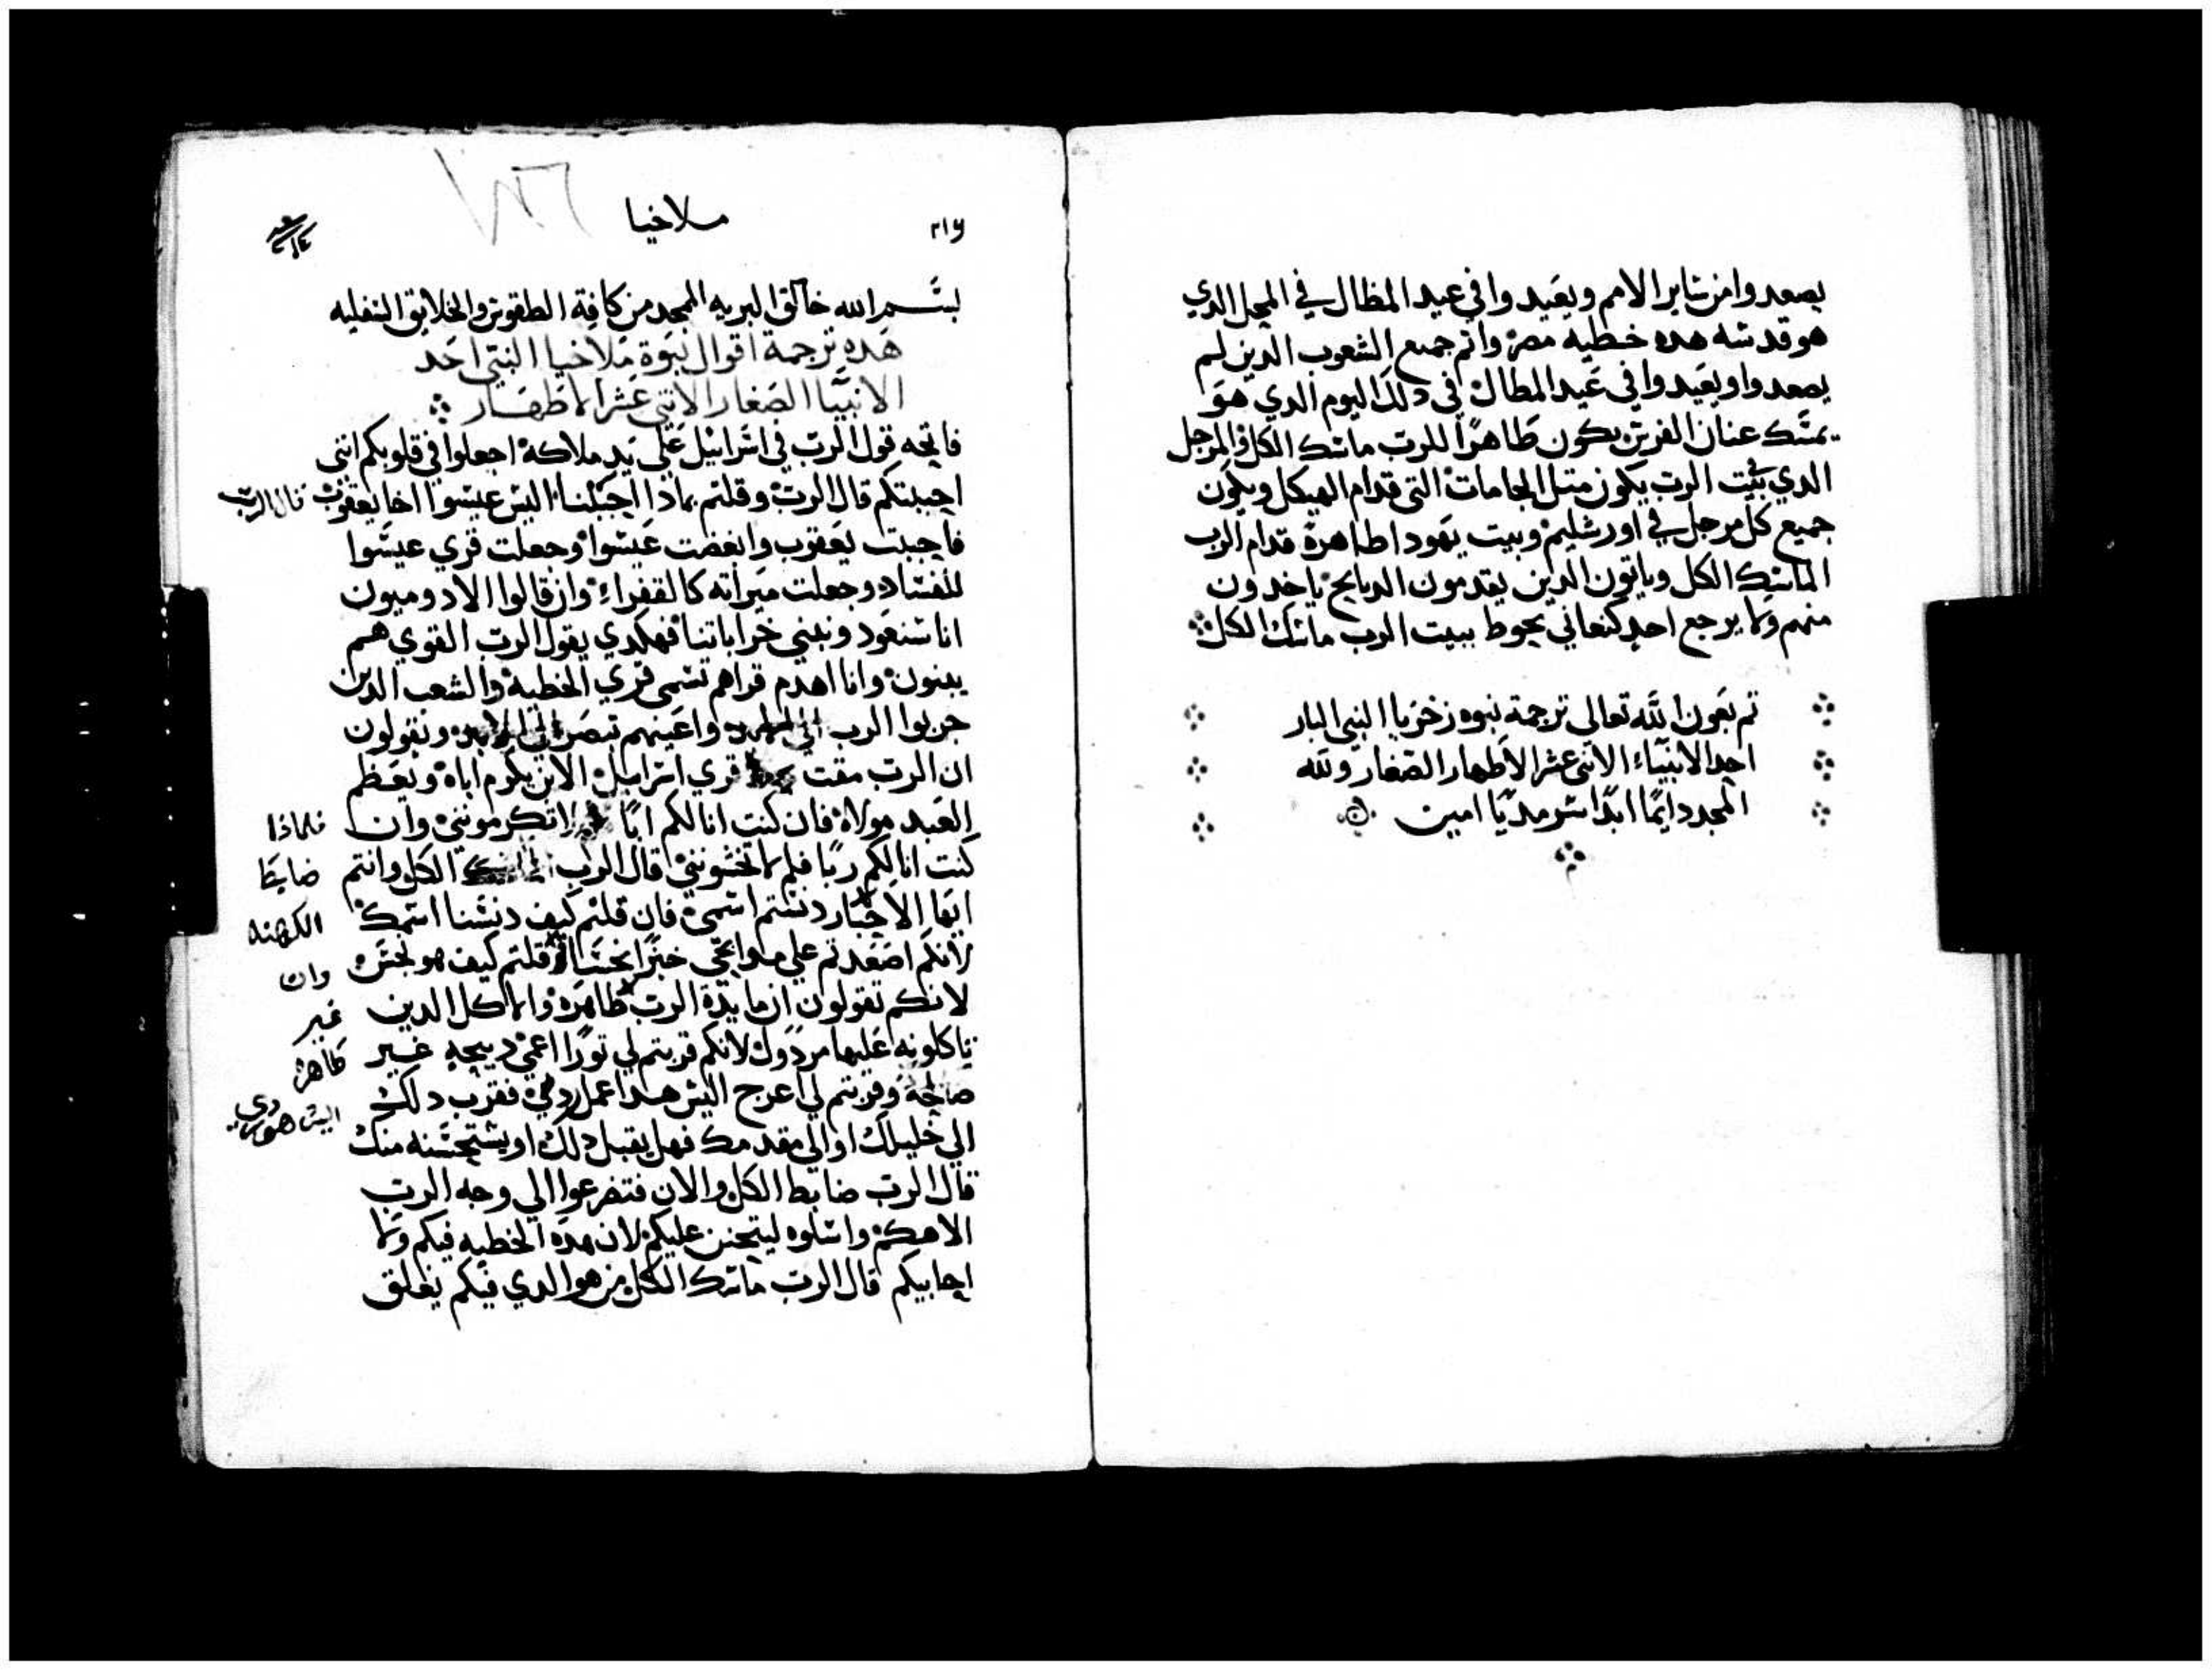 يصعدوا من ساير الامم ويعيدوا في عيد المظال في المحل الدي
هو قدسه هده خطيه مصر واتم جميع الشعوب الدين لم
يصعدوا ويعيدوا في عيد المظال في دلك اليوم الدي هو
يمسك عنان الفرس يكون طاهرا للرب ماسك الكل والمرجل
الدي في بيت الرب يكون متل الجامات التي قدام الهيكل ويكون
جميع كل مرجل في اورشليم وبيت يهودا طاهرة قدام الرب
الماسك الكل وياتون الدين يقدمون الدبايح ياخدون
منهم ولا يرجع احد كنعاني يحوط ببيت الرب ماسك الكل
تم بعون الله تعالي ترجمة نبوه زخريا النبي البار
احد الانبياء الاتني عشر الاطهار الصغار ولله
المجد دايما ابدا سرمديا امين
٢١٦
ملاخيا
بسم الله خالق البريه الممجد من كافة الطقوس والخلايق السفليه
هده ترجمة اقوال نبوة ملاخيا النبي احد
الانبيا الصغار الاتني عشر الاطهار
فاتجه قول الرب في اسراييل علي يد ملاكه اجعلوا في قلوبكم انني
احببتكم قال الرب وقلتم بمادا احببتنا اليس عيسوا اخا يعقوب قال الرب
فاحببت يعقوب وابغضت عيسوا وجعلت قري عيسوا
للفساد وجعلت ميراته كالقفراء وان قالوا الادوميون
انا سنعود ونبني خراباتنا فهكدي يقول الرب القوي هم
يبنون وانا اهدم قراهم تسمي قري الخطية والشعب الدين
حربوا الرب واعينهم تبصر وتقولون
ان الرب مقت قري اسراييل الابن يكرم اباه ويعظم
العبد مولاه فان كنت انا لكم ابا لا تكرمونني وان
فلماذا
كنت انا لكم ربا فلم لا تخشونني قال الرب الكل وانتم
ضابط
ايها الاحبار دنستم اسمي فان قلتم كيف دنسنا اسمك
الكهنه
لانكم اصعدتم علي مدابحي خبزا نجسا قلتم كيف هو نجس
وان
لانكم تقولون ان مايدة الرب طاهره والاكل الدين
غير
تاكلونه عليها مردول لانكم قربتم لي تورا اعمي دبيحه غير
طاهره
صالحة وقربتم لي اعرج اليس هدا عمل ردي فقرب دلك
اليس هو ردي
الي خليلك او الي مقدمك فهل يقبل دلك او يستحسنه منك
قال الرب ضابط الكل والان فتضرعوا الي وجه الرب
الاهكم واسلوه ليتحنن عليكم لان هده الخطيه فيكم ولا
احابيكم قال الرب ماسك الكل من هو الدي فيكم يغلق